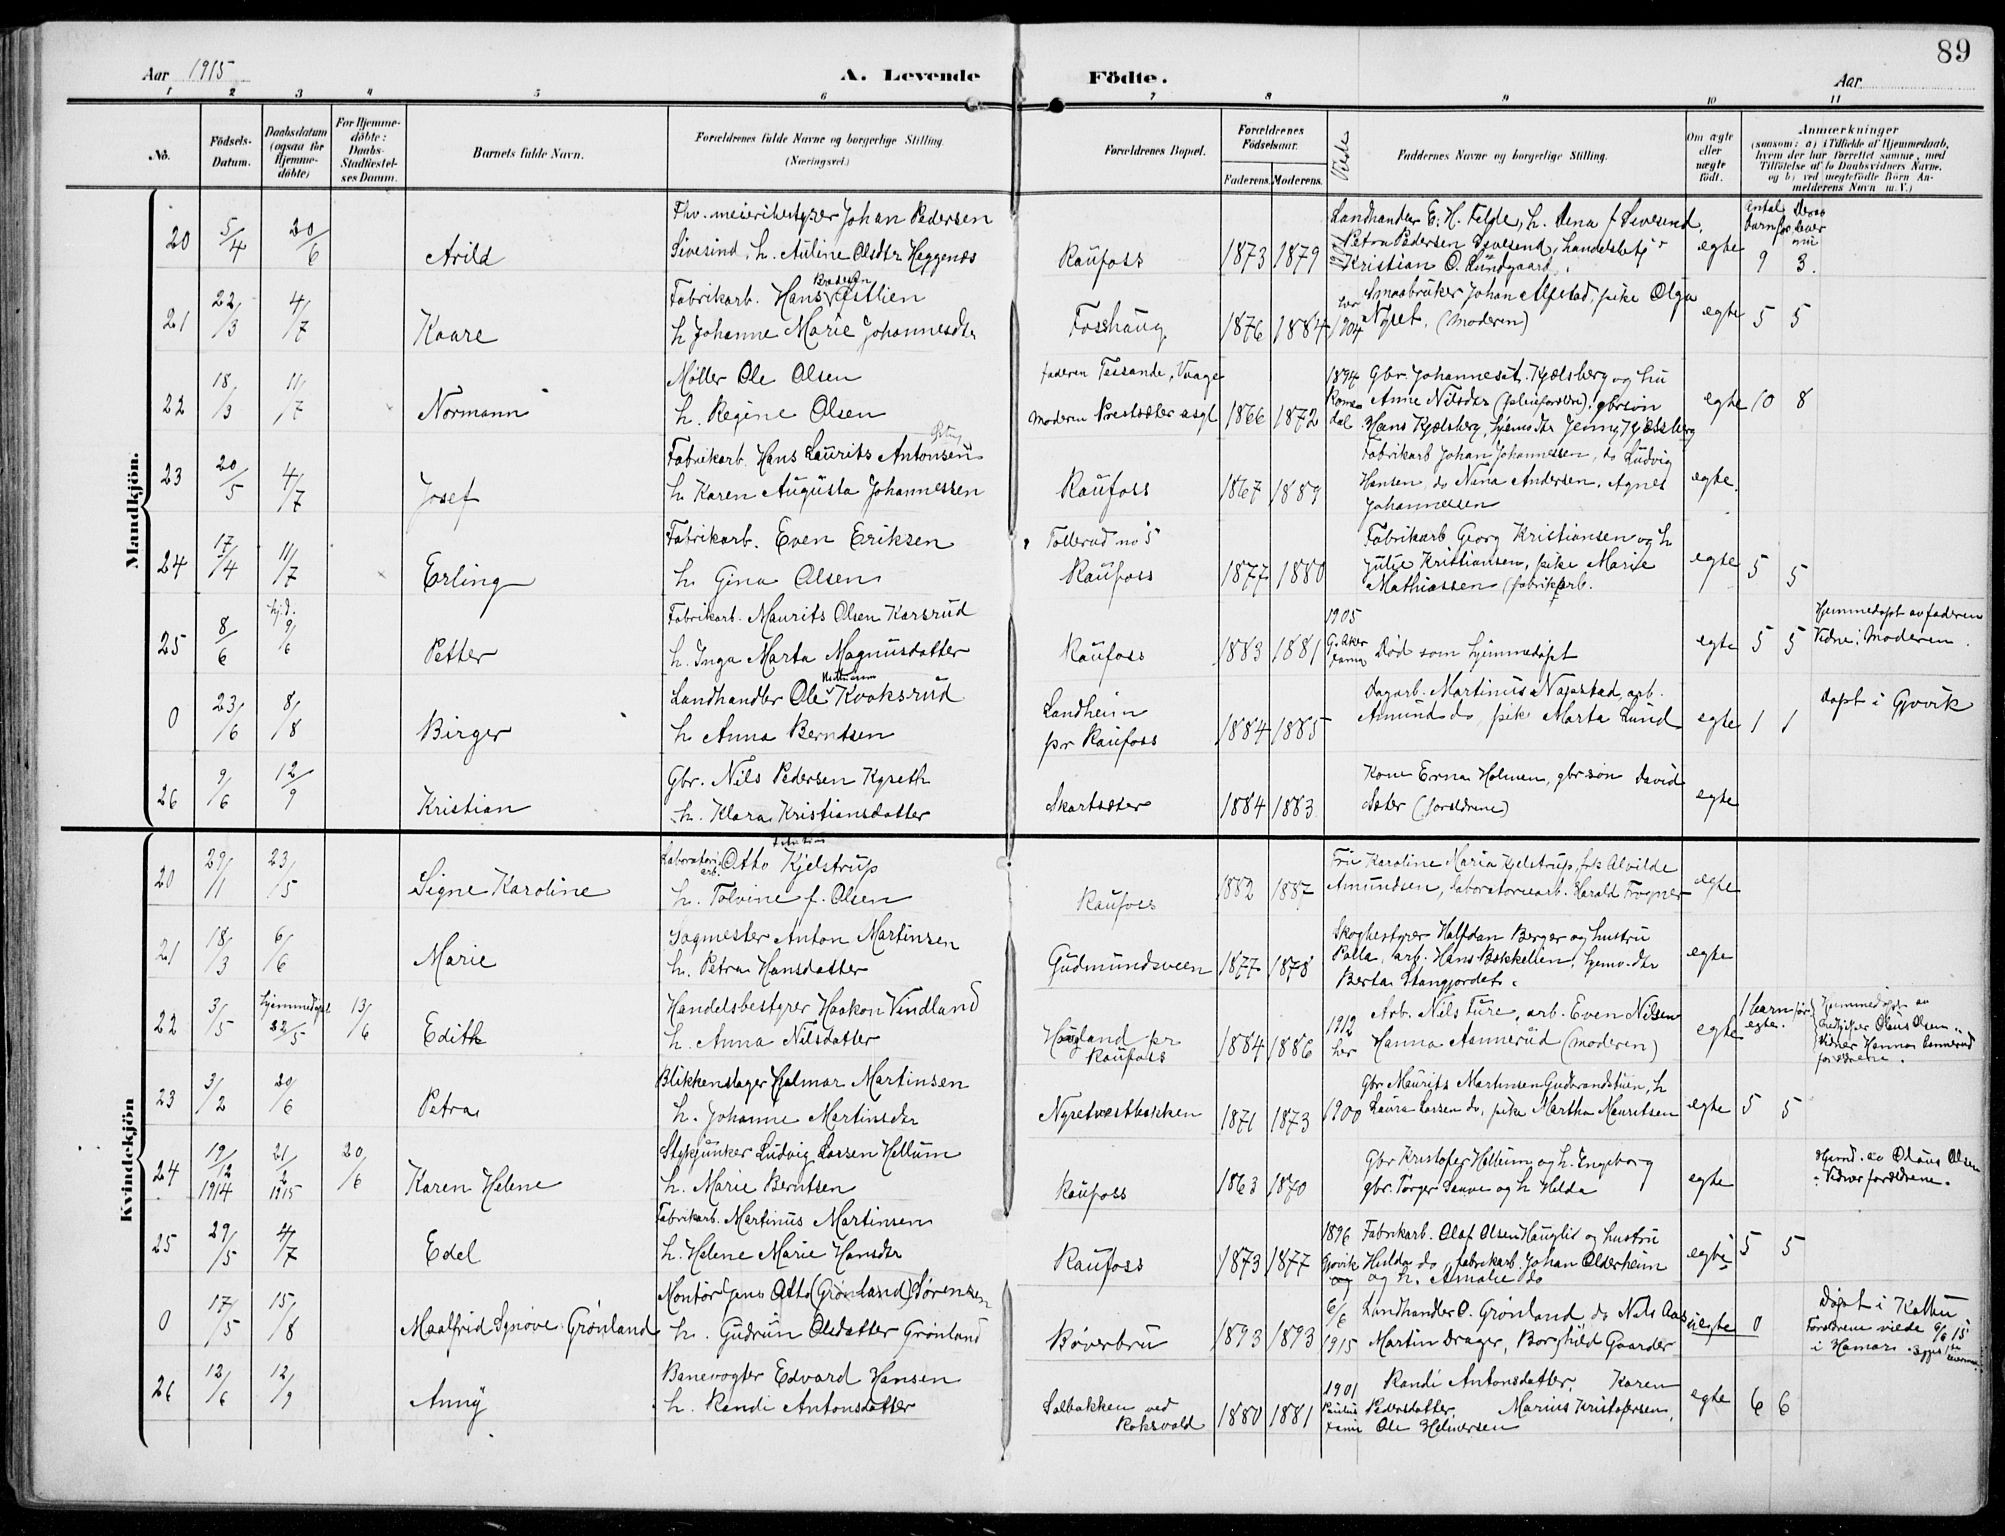 89
Aar 1915 A. Levende Födte. Aar
1 2 3 4 5 6 7 8 9 10 11
No.
Födsels-Datum.
Daabsdatum (ogsaa for Hjemme-döbte)
For Hjemme-döbte: Daabs-Stadfæstel-ses Datum.
Barnets fulde Navn.
Forældrenes fulde Navne og borgerlige Stilling.
(Næringsvei.)
Forældrenes Bopæl.
Forældrenes Födselsaar.
Faderens. Moderens.
Viede
Faddernes Navne og borgerlige Stilling.
Om ægte eller uægte födt.
Anmærkninger
(saasom: a) i Tilfælde af Hjemmedaab, hvem der har forrettet samme, med Tilföielse af to Daabsvidners Navne. og b) ved uægtefödte Börn An-melderens Navn m. V.)
Antal barn før, Derav lever nu
Mandkjön.
20 5/4 20/6 Arild
Fhv. meieribestyrer Johan Pedersen
Sivesind, h. Auline Olsdtr Heggenes
Raufoss 1873 1879 1901
Landhandler E. H. Felde, h. Dena f. Sivesind,
Petra Pedersen Sivesind, handelsbetj
Kristian O. Lundgaard.
egte 9 3.
21 22/3 4/7 Kaare
Fabrikarb. Hans Vestlien
h Johanne Marie Johannesdtr
Fosshaug 1876 1884 her 1904
Smaabruker Johan Alfstad, pike Olga
Nyset. (moderen)
egte 5 5
22 18/3 11/7 Normann
Møller Ole Olsen
h. Regine Olsen
faderen Tessande, Vaage
moderen Prestsæter asgl 1866 1872
1894 Romsdal
Gbr. Johannes Kjølsberg og hu
Anne Nilsdtr (pleieforeldre), gbrsøn
Hans Kjølsberg, hjemdtr Jenny Kjølsberg
egte 10 8
23 20/5 4/7 Josef
Fabrikarb. Hans Laurits Antonsen
h. Karen Augusta Johannessen
Raufoss 1867 1889
Fabrikarb Johan Johannessen, do Ludvig
Hansen, do Nina Andersen, Agnes
Johannessen
egte.
24 17/4 11/7 Erling
Fabrikarb. Even Eriksen
h. Gina Olsen
Tollerud no 5
Raufoss 1877 1880
Fabrikarb Georg Kristiansen og h
Julie Kristiansen, pike Marie
Mathiassen (fabrikarb.
egte 5 5
25 8/6 hj.d. 9/6 Petter
Fabrikarb. Maurits Olsen Karsrud
h. Inga Marta Magnusdatter
Raufoss 1883 1881
1905 G. Aker
Død som hjemmedøpt
egte 5 5
Hjemmedøpt av faderen
Vidne: Moderen.
0 23/6 8/8 Birger
Landhandler Ole Kvoksrud
h Anna Berntsen
Landheim
pr Raufoss 1884 1885
Dagarb. Martinus Nøjestad, arb.
Amund do, pike Marta Lund
egte 1 1
Døpt i Gjøvik
26 9/6 12/9 Kristian
Gbr. Nils Pedersen Kyseth
h. Klara Kristiansdatter
Skartsæter 1884 1883
Kone Erna Holmen, gbr søn David
Sæter (foreldrene)
egte
Kvindekjön
20 29/1 23/5 Signe Karoline
Laboratoriearb. Otto Kjelstrup
h. Tolvine f. Olsen
Raufoss 1882 1887
Fru Karoline Maria Kjelstrup, frk Alvilde
Amundsen, laboratoriearb. Harald Frogner
egte
21 18/3 6/6 Marie
Sagmester Anton Martinsen
h. Petra Hansdatter
Gudmundsveen 1877 1878
Skogbestyrer Halfdan Berger og hustru
Palla, arb. Hans Bakkelien, hjemv.dtr
Berta Stangjordet.
egte
22 3/5 hjemmedøpt 22/5 13/6 Edith
Handelsbestyrer Haakon Vindland
h. Anna Nilsdatter
Haugland pr
Raufoss 1884 1886 1912 her
Arb. Nils Ture, arb. Even Nilsen
Hanna Asmerud (moderen)
egte 1 barn før egte.
Hjemmedøpt av
Olaus Olsen
Vidner Hanna Asmerud
foreldrene.
23 3/2 20/6 Petra
Blikkenslager Hjalmar Martinsen
h. Johanne Martinsdtr
Nysetvestbakken 1871 1873 1900
Gbr Maurits Martinsen Gudbrandstuen, h
Laura Larsen do, pike Martha Mauritsen
egte 5 5
24 19/12 1914 21/2 1915 20/6 Karen Helene
Stykjunker Ludvig Larsen Hellum
h. Marie Berntsen
Raufoss 1863 1870
Gbr Kristofer Hellum og h. Engeborg
gbr. Torger Sauve og h Helda
egte
Hjemd. av Olaus Olsen
Vidner foreldrene.
25 29/5 4/7 Edel
Fabrikarb. Martinus Martinsen
h. Helene Marie Hansdtr
Raufoss 1873 1877 1896 Gjøvik
Fabrikarb. Olaf Olsen Hauglid og hustru
Hulda do, fabrikarb. Johan Olderheim
og h. Amalie do
egte 5 5
0 17/5 15/8 Maalfrid Synøve Grönland
Montør Jens Otto (Grønland) Sørensen
h. Gudrun Olsdatter Grønland
Bøverbru 1893 1893 6/6 1915
Landhandler O. Grönland, do Nils Aas
Martin Drager, Borghild Gaarder
uegte 0
Døpt i Kolbu
Foreldrene viede 6/6 15
i Hamar.
26 12/6 12/9 Anny
Banevogter Edvard Hansen
h. Randi Antonsdatter
Solbakken ved
Roksvold 1880 1881 1901 Paulus
Randi Antonsdatter, Karen
Pedersdatter Marius Kristofersen,
Ole Helmersen
egte 6 6